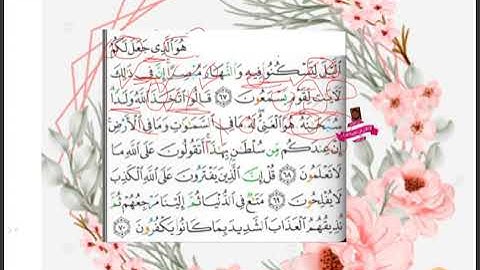 هُوَ ٱلَّذِى جَعَلَ لَكُمُ
ٱلَّيۡلَ لِتَسۡكُنُوا۟ فِيهِ وَٱلنَّهَارَ مُبۡصِرًاۚ إِنَّ فِى ذَٰلِكَ
لَـَٔايَـٰتٍ لِّقَوۡمٍ يَسۡمَعُونَ ٦٧ قَالُوا۟ ٱتَّخَذَ ٱللَّهُ وَلَدًاۗ
سُبۡحَـٰنَهُۥۖ هُوَ ٱلۡغَنِىُّۖ لَهُۥ مَا فِى ٱلسَّمَـٰوَٰتِ وَمَا فِى ٱلۡأَرۡضِۚ
إِنۡ عِندَكُم مِّن سُلۡطَـٰنٍۭ بِهَـٰذَآۚ أَتَقُولُونَ عَلَى ٱللَّهِ مَا
لَا تَعۡلَمُونَ ٦٨ قُلۡ إِنَّ ٱلَّذِينَ يَفۡتَرُونَ عَلَى ٱللَّهِ ٱلۡكَذِبَ
لَا يُفۡلِحُونَ ٦٩ مَتَـٰعٌ فِى ٱلدُّنۡيَا ثُمَّ إِلَيۡنَا مَرۡجِعُهُمۡ ثُمَّ
نُذِيقُهُمُ ٱلۡعَذَابَ ٱلشَّدِيدَ بِمَا كَانُوا۟ يَكۡفُرُونَ ٧٠